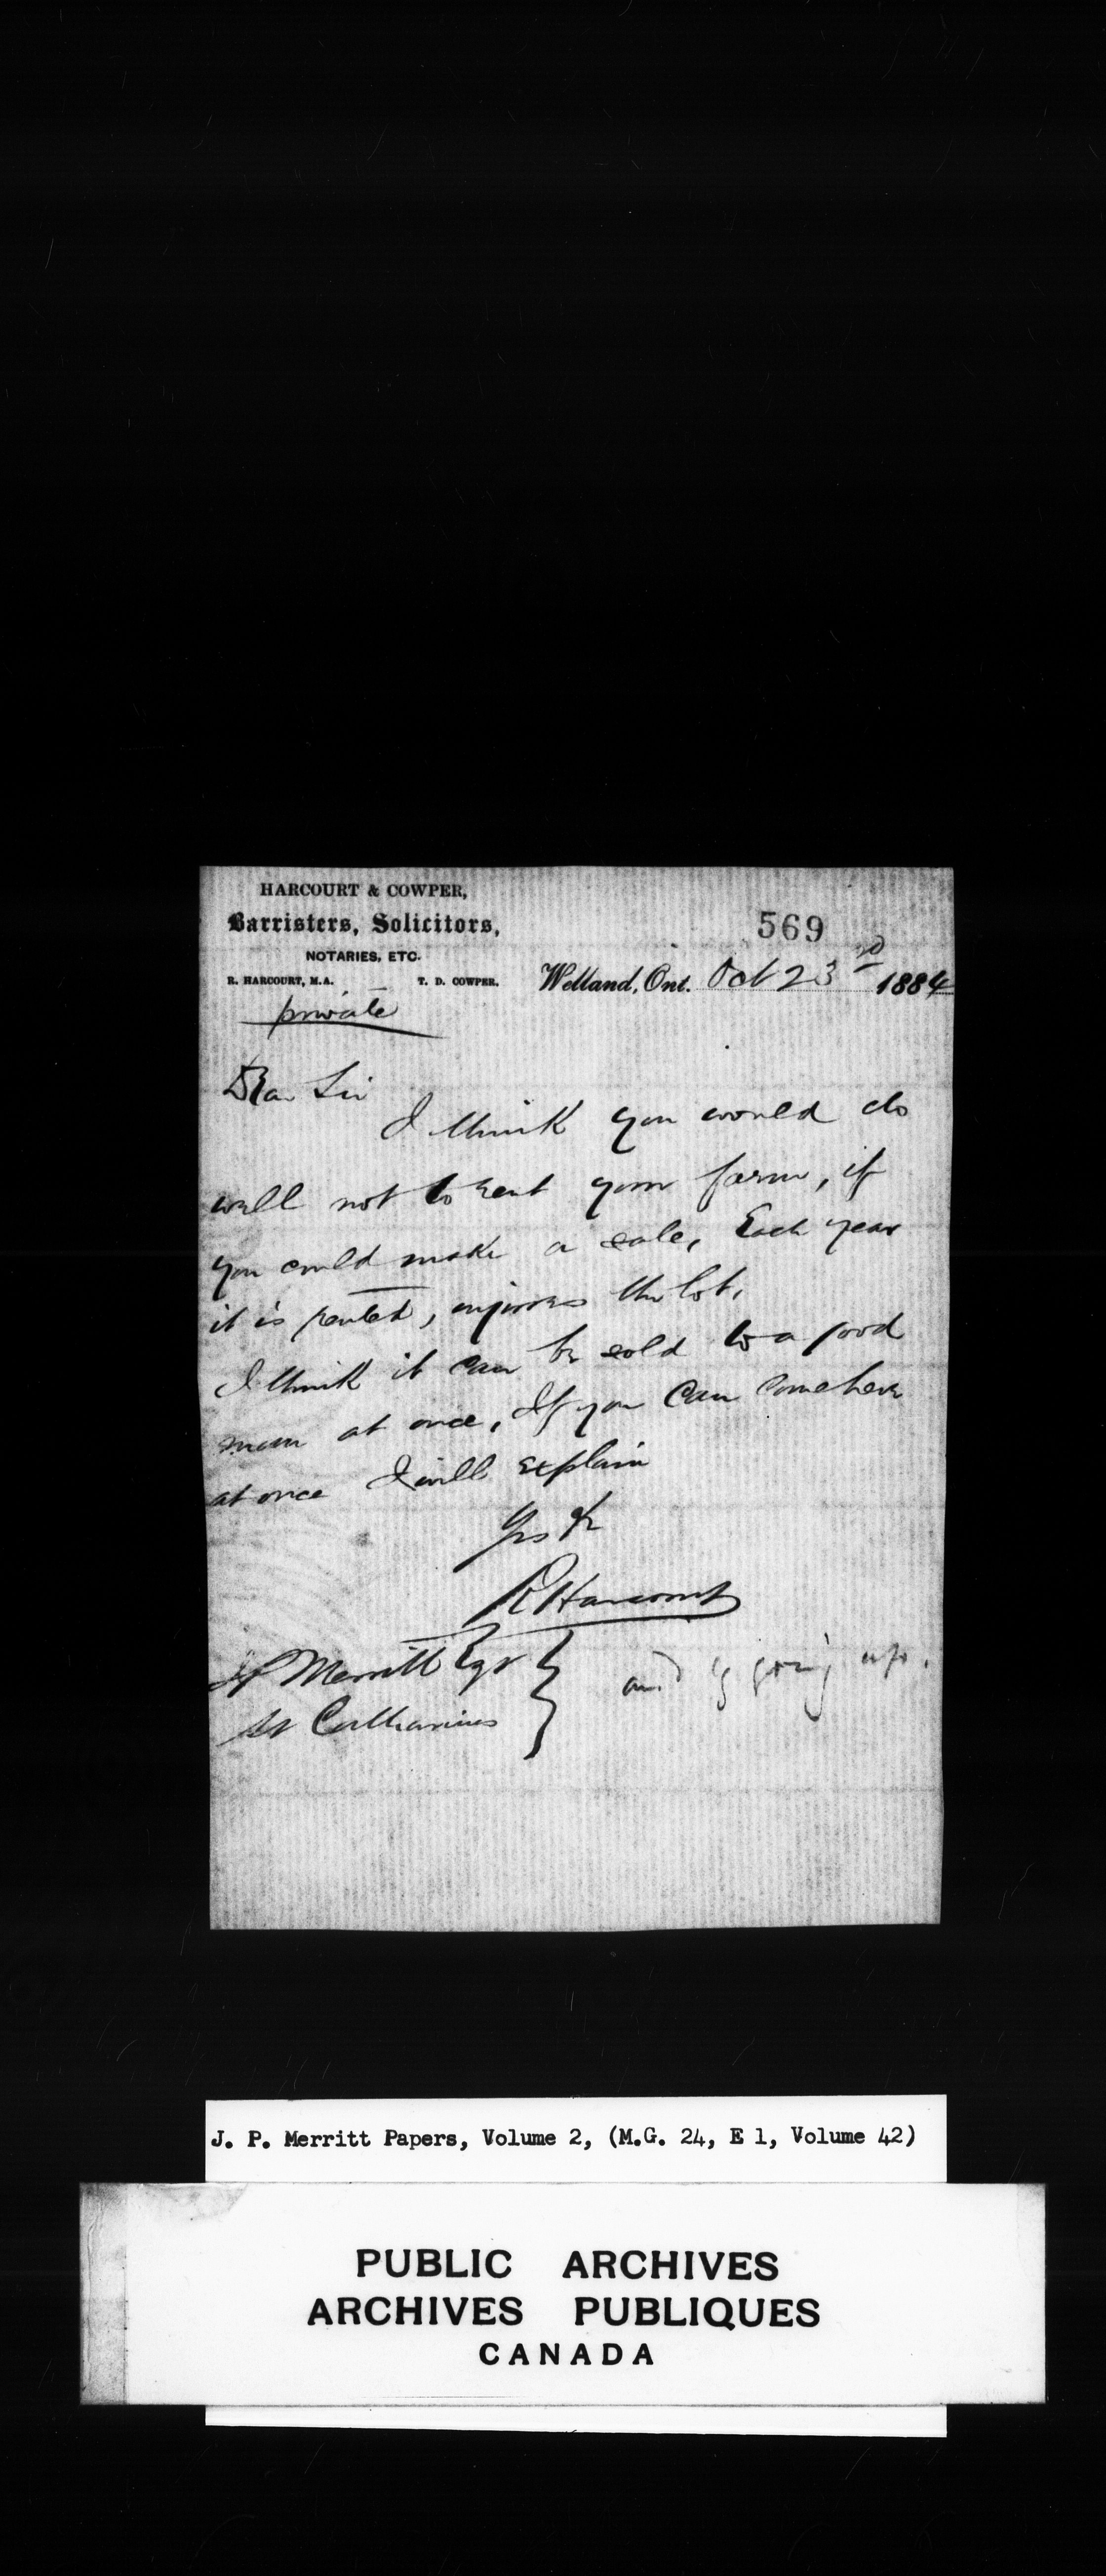 HARCOURT & COWPER,
Barristers, Solicitors,
NOTARIES, ETC.
R. HARCOURT, M.A. T. D. COWPER.
569
Welland, Ont. Oct 23rd 1884
private
Dear Sir
I think you would do
well not to rent your farm, if
you could make a sale, Each year
it is rented, injures the lot.
I think it can be sold to a good
man at once, If you can come here
at once I will explain
Yrs
R Harcourt
Merritt Esqr
St Catharines
and going up.
J. P. Merritt Papers, Volume 2, (M.G. 24, E 1, Volume 42)
PUBLIC ARCHIVES
ARCHIVES PUBLIQUES
CANADA